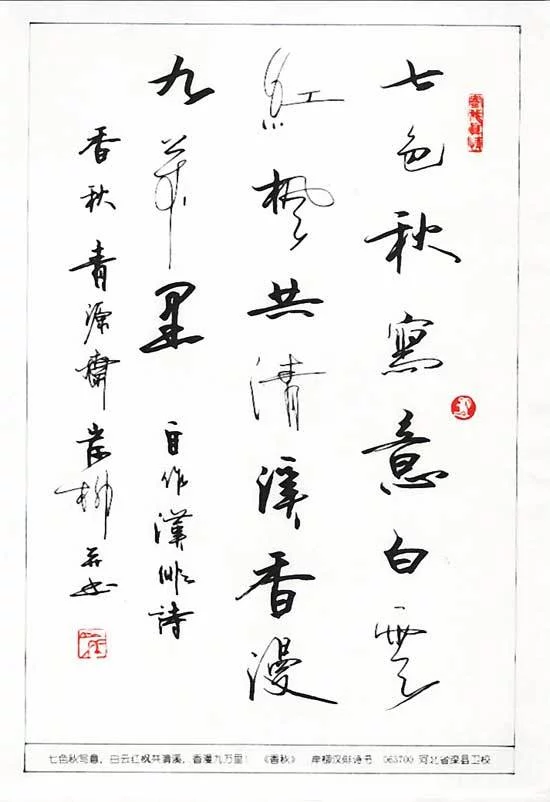 七色秋寫意白雲
紅楓共清溪香漫
九萬里
自作漢俳詩
香秋 青源齋 岸柳 并书
七色秋写意，白云红枫共清溪，香漫九万里！ 《香秋》 岸柳汉俳诗书 063700 河北省滦县卫校